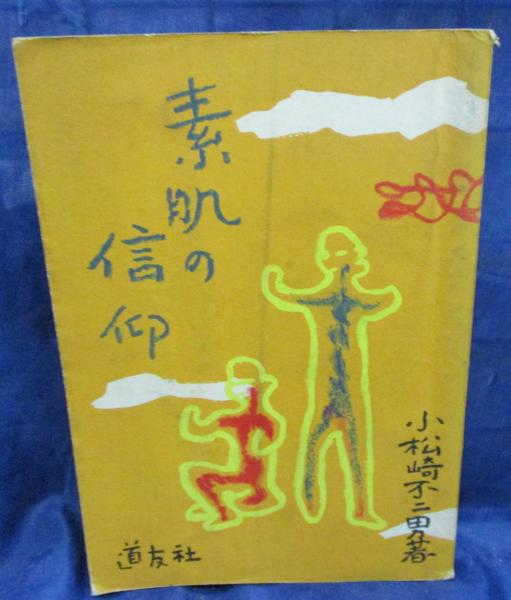 素肌の
信仰
小松崎不二男著
道友社